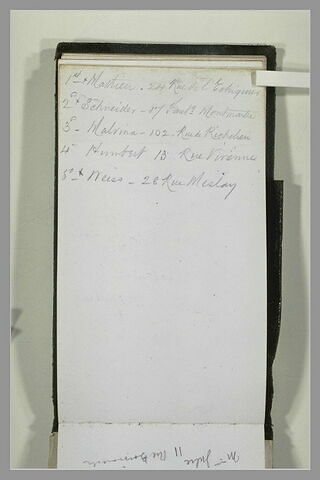 1º + Mathieu - 24 Rue de l'Echiquier
2º + Schneider - 17 Faubg Montmartre
3º - Malvina - 102 Rue de Richelieu
4º Humbert 13 Rue Vivienne
5º + Weiss - 28 Rue Meslay
Mme Julie 11 Rue